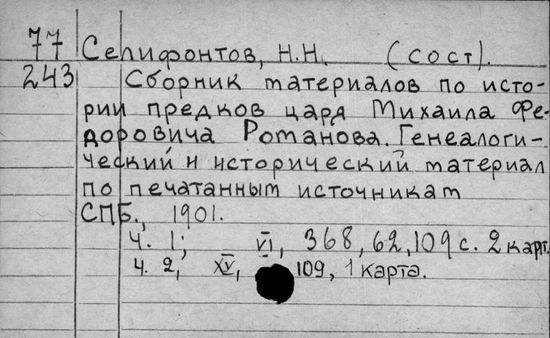 77 Селифонтов, Н.Н. (сост).
243 Сборник материалов по исто-
рии предков царя Михаила Фе-
доровича Романова. Генеалоги-
ческий и исторический материал
по печатанным источникам
СПБ., 1901.
ч. 1; VI, 368, 62, 109 с. 2 карт.
ч. 2, XV, 109, 1 карта.